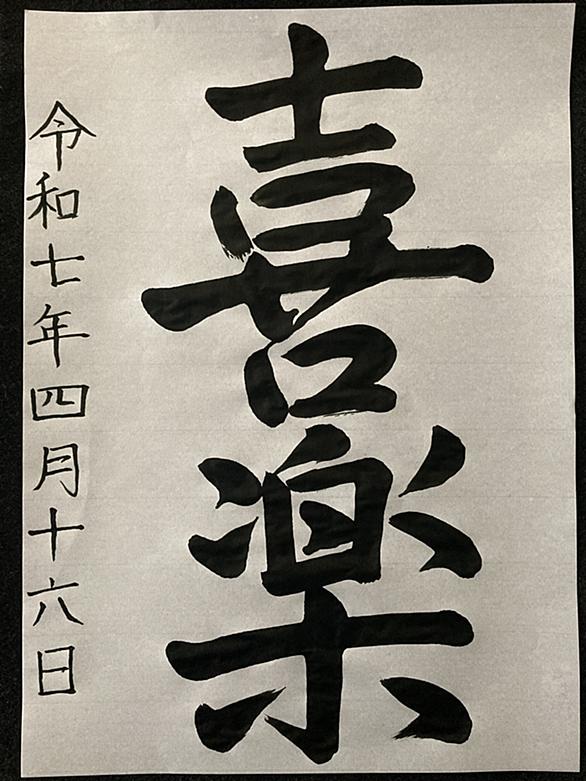 喜楽
令和七年四月十六日